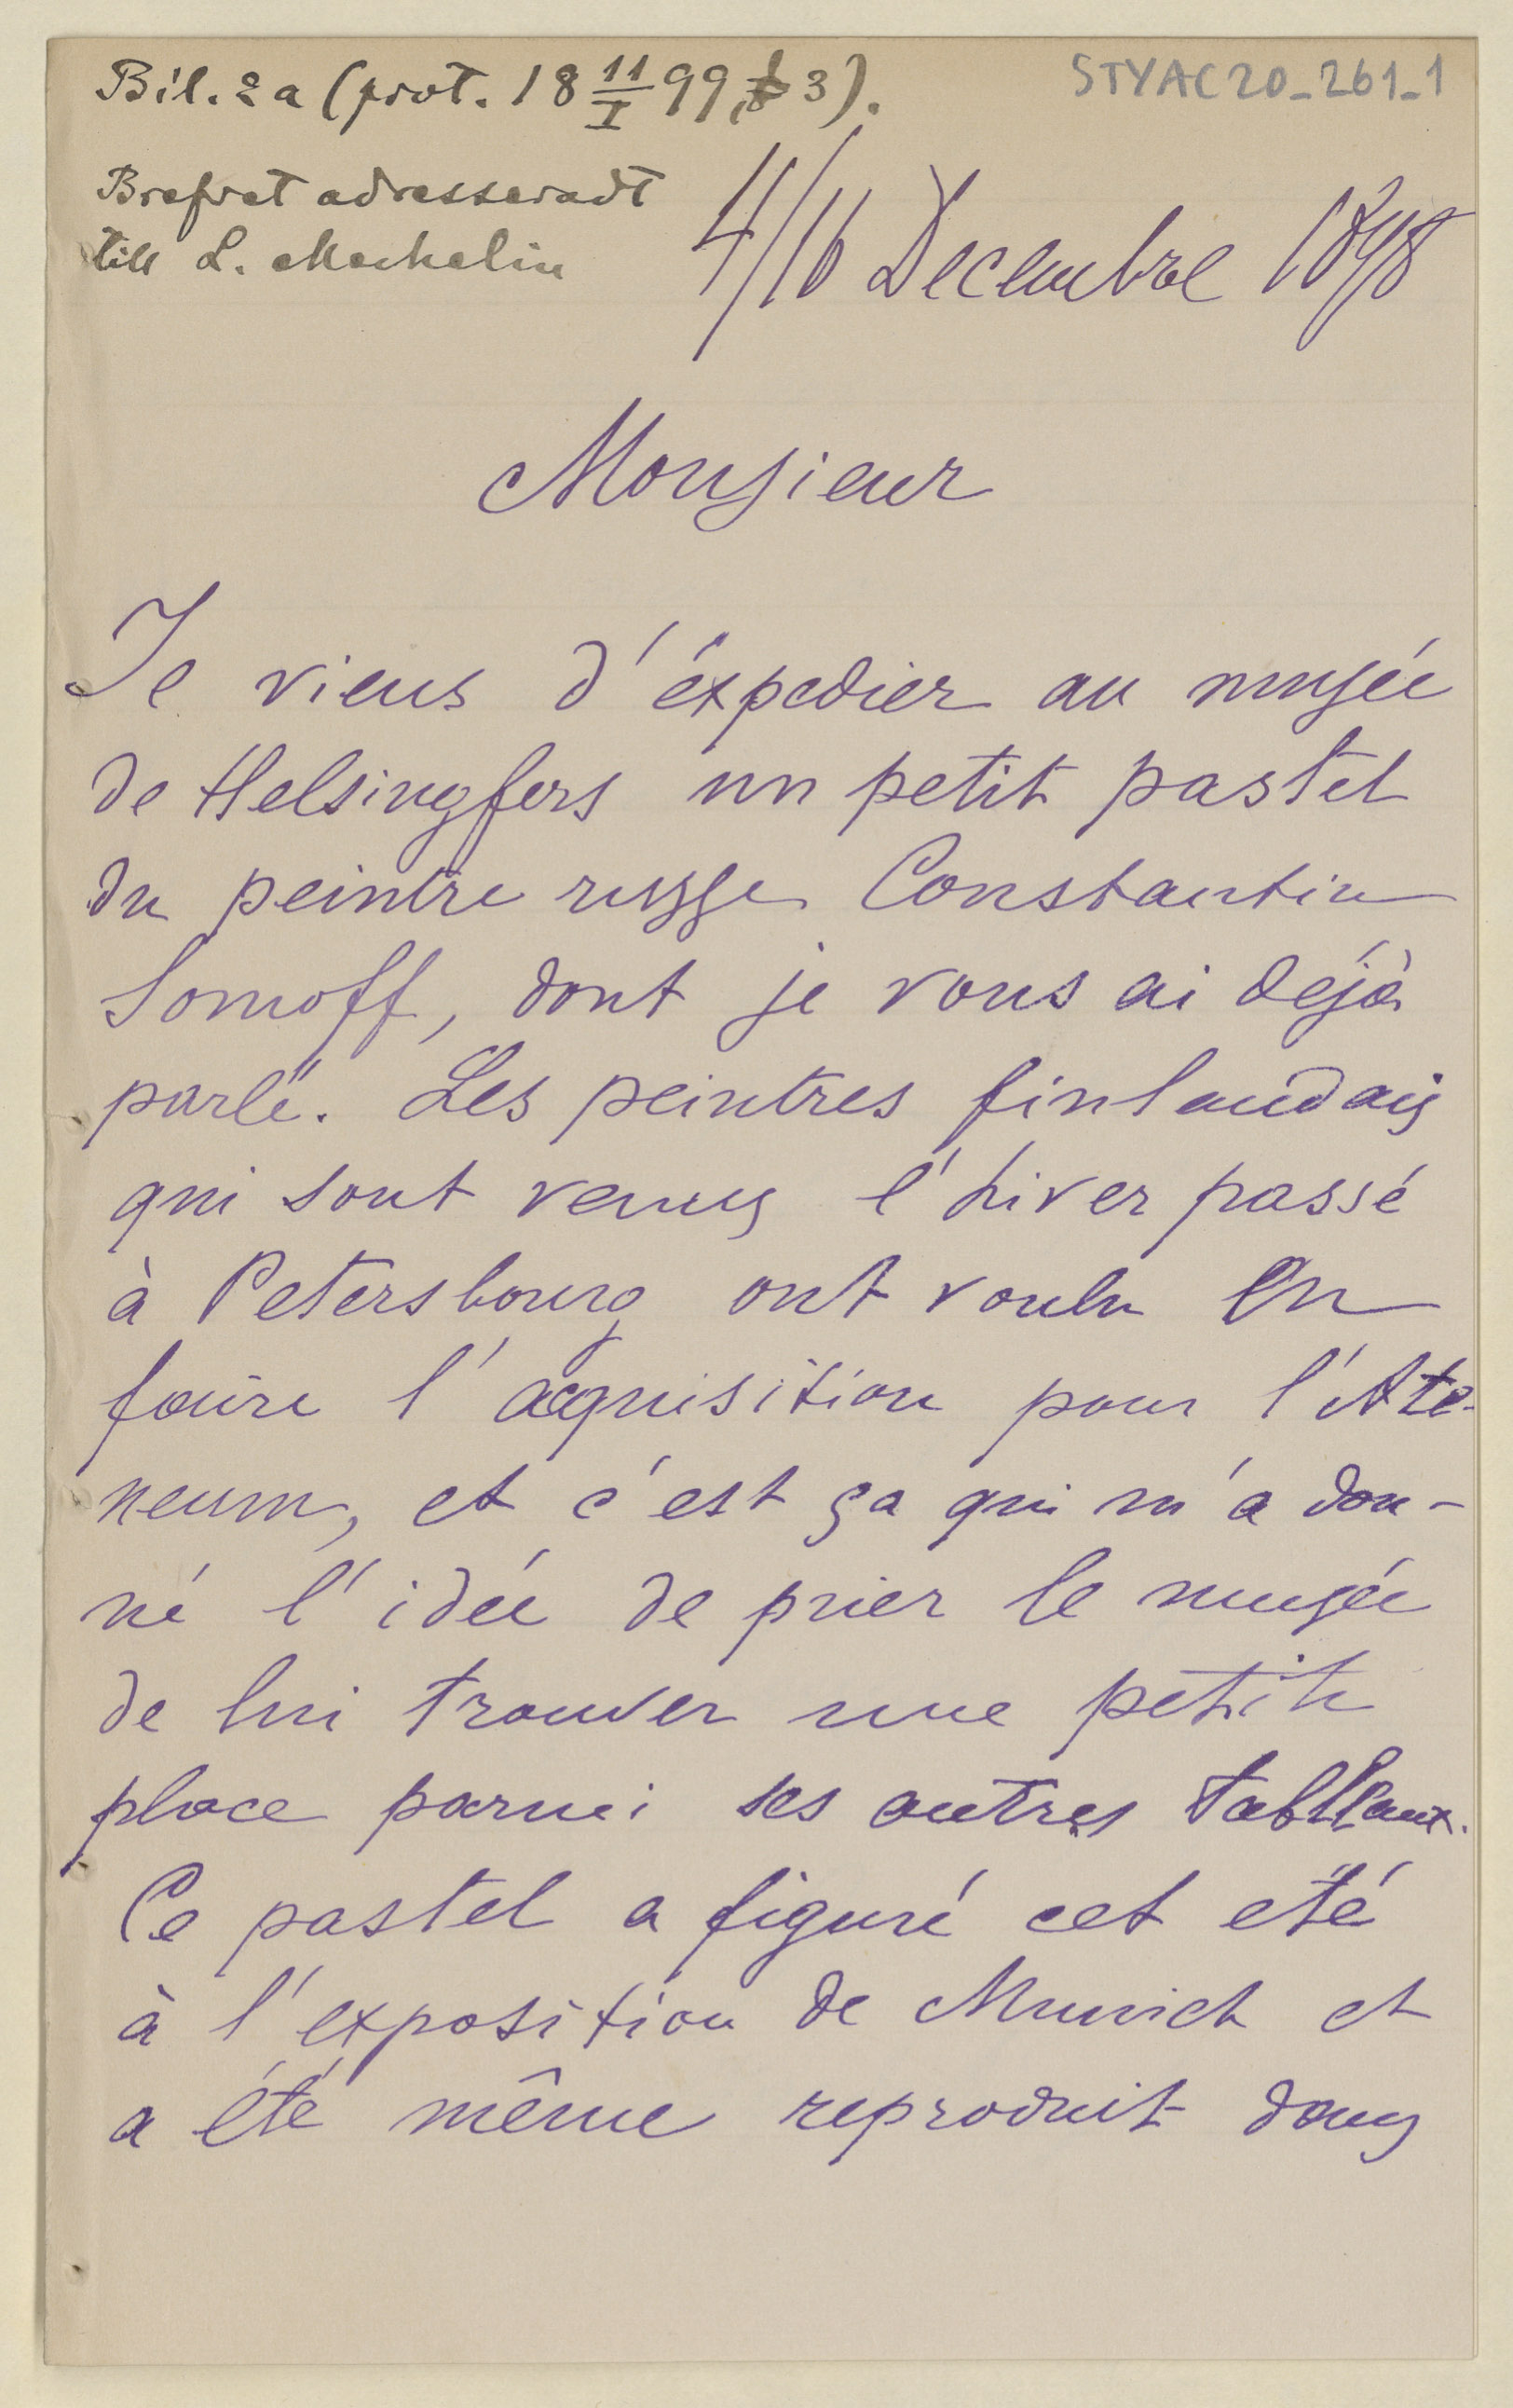 Bil. 2a (prot. 18 11/I 99, § 3).
STYAC20_261_1
Brefvet adresseradt
till L. Mechelin
4/16 Decembre 1898
Monsieur
Je viens d'éxpedier au musée
de Helsingfers un petit pastel
du peintre russe Constantin
Somoff, dont je vous ai dejà
parlé. Les peintres finlandais
qui sont venus l'hiver passé
à Petersbourg ont voulu en
faire l'acquisition pour l'Ate-
neum, et c'est ça qui m'a don-
né l'idée de prier le musée
de lui trouver une petite
place parmi ses autres tableaux.
Ce pastel a figuré cet été
à l'exposition de Munich et
a été même reproduit dans